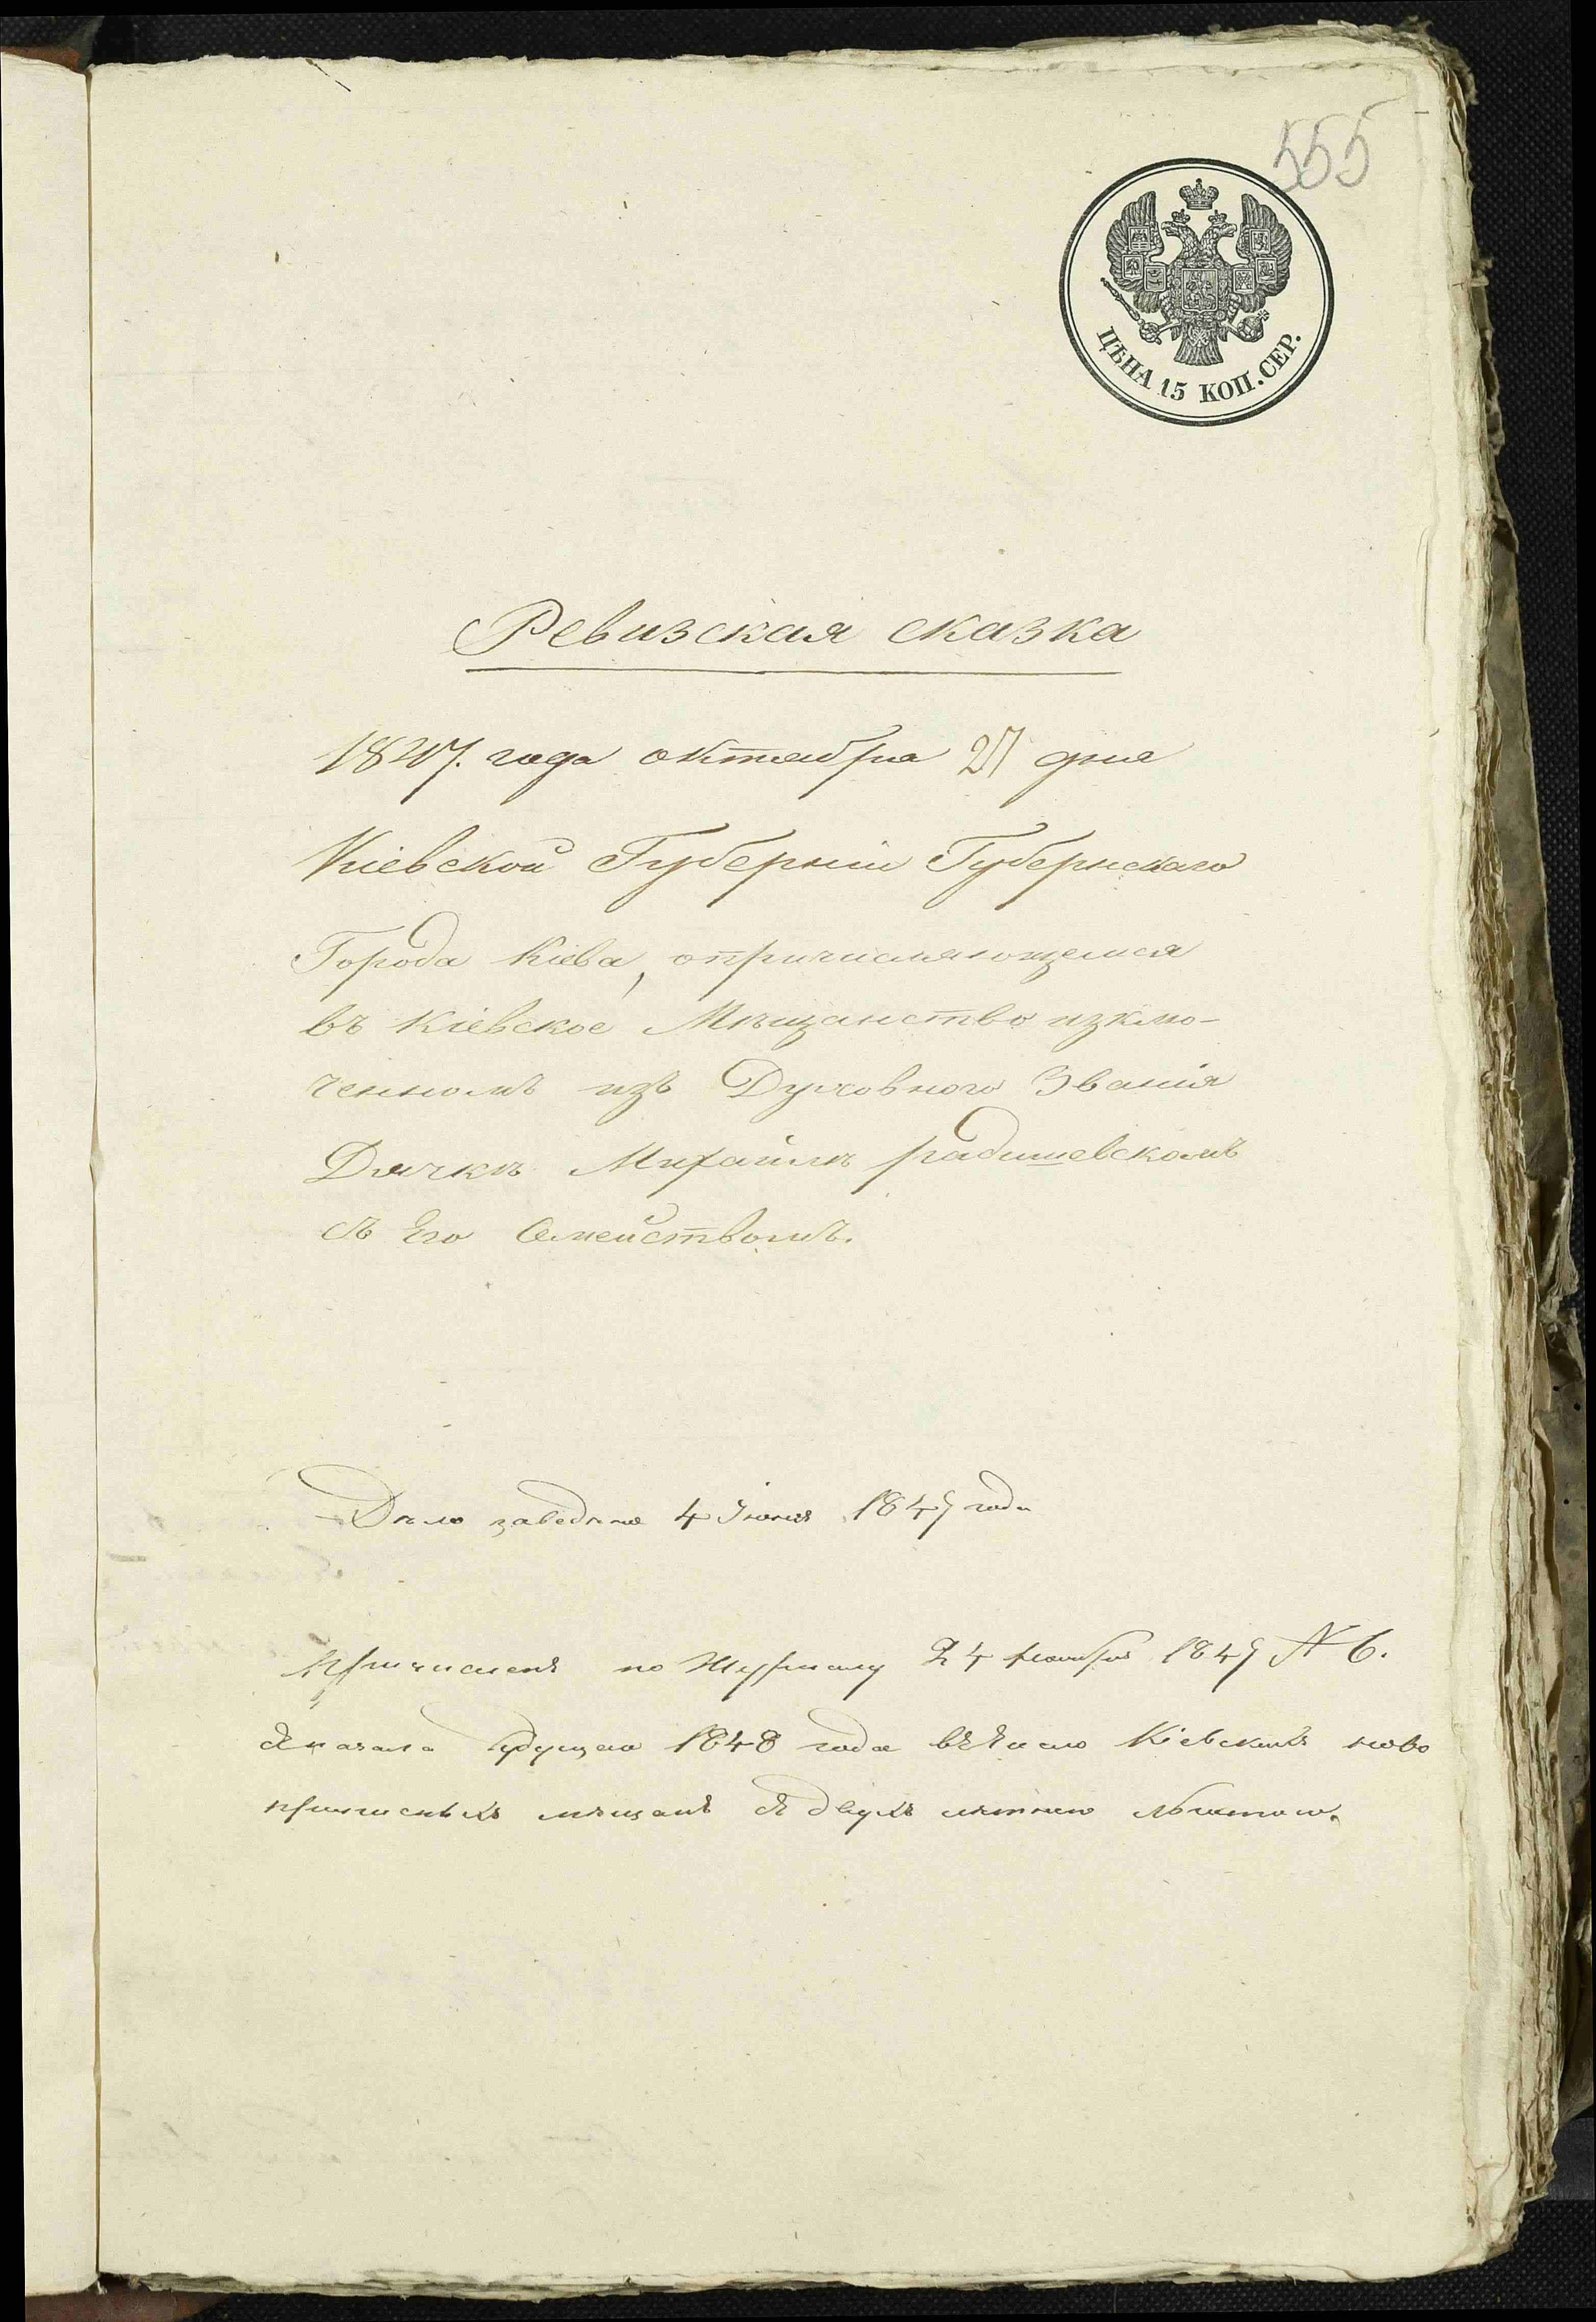 555
ЦѢНА 15 КОП. СЕР.
Ревизская сказка
1847. года октября 27 дня
Кіевской Губерніи Губернскаго
Города Кіева, опричисляющемся
въ Кіевское Мѣщанство изклю-
ченномъ изъ Духовного Званія
Дьячкѣ Михаилѣ радишевскомъ
съ Его Семействомъ.
Дѣло заведено 4 Іюня 1847 года
Причисленъ по Журналу 24 ноября 1847 № 6.
съ начала будущаго 1848 года въ число Кіевскихъ ново
причисныхъ мѣщанъ съ двухъ лѣтнею льготою.